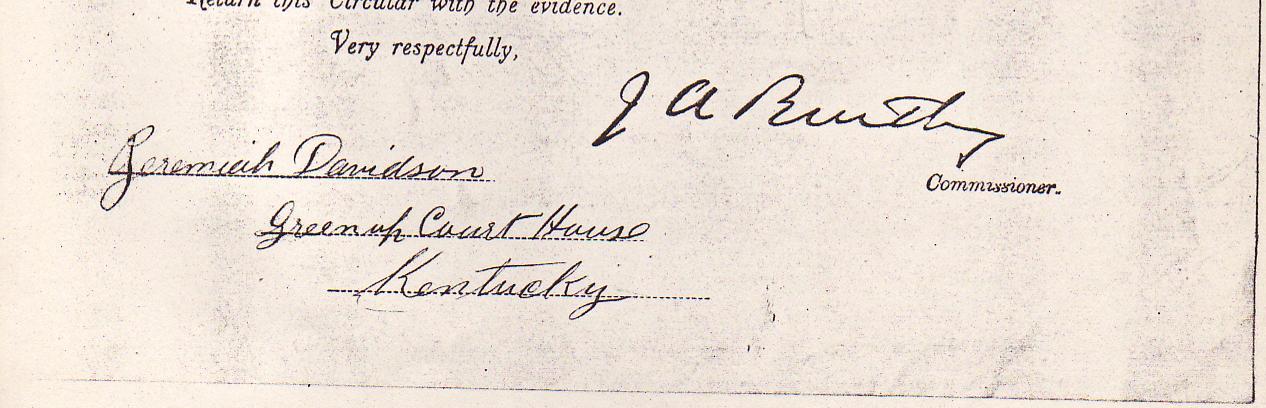 Return this Circular with the evidence.
Very respectfully,
J A Bentley
Commissioner.
Jeremiah Davidson
Greenup Court House
Kentucky